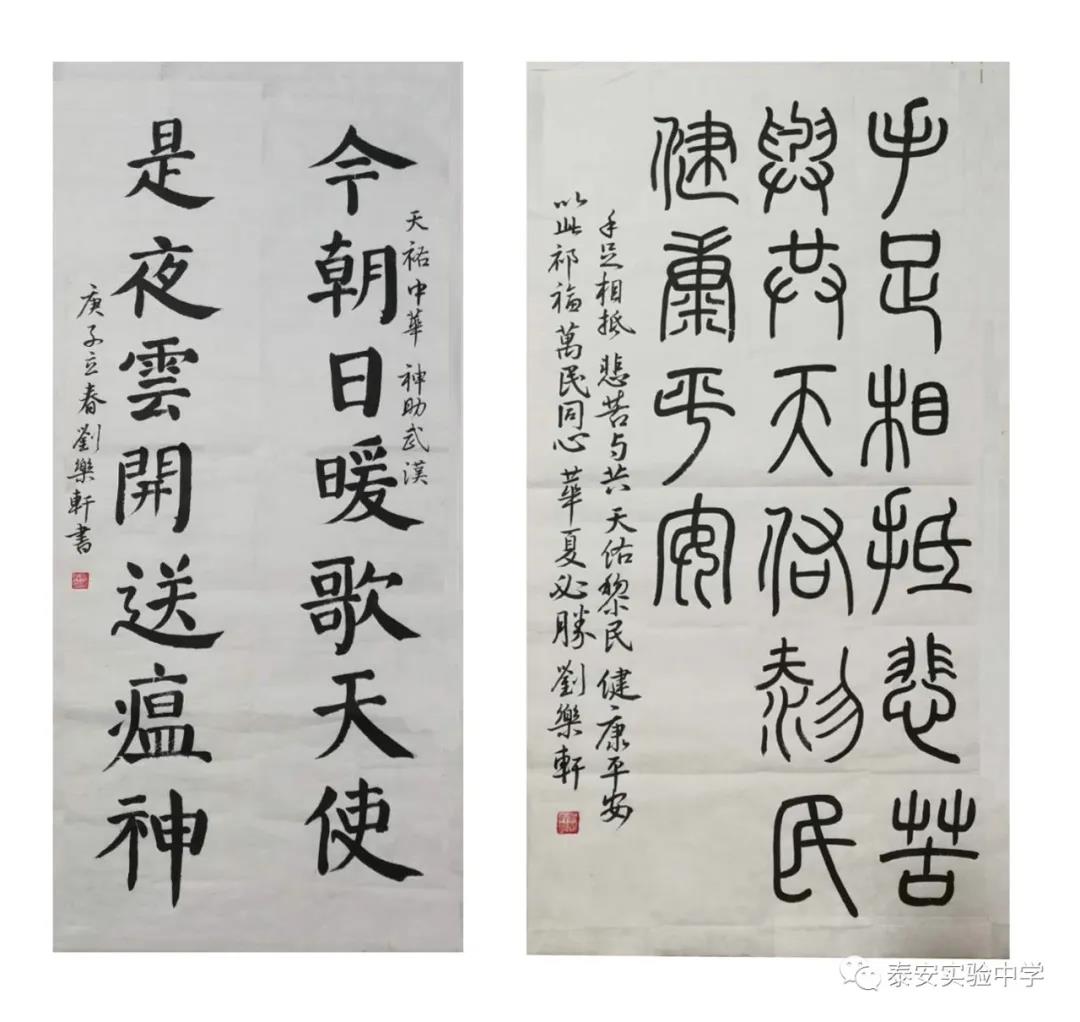 天祐中華 神助武漢
今朝日暖歌天使
是夜雲開送瘟神
庚子立春劉樂軒書
手足相抵悲苦
與共天佑黎民
健康平安
手足相抵 悲苦与共 天佑黎民 健康平安
以此祁福萬民同心 華夏必勝 劉樂軒
泰安实验中学